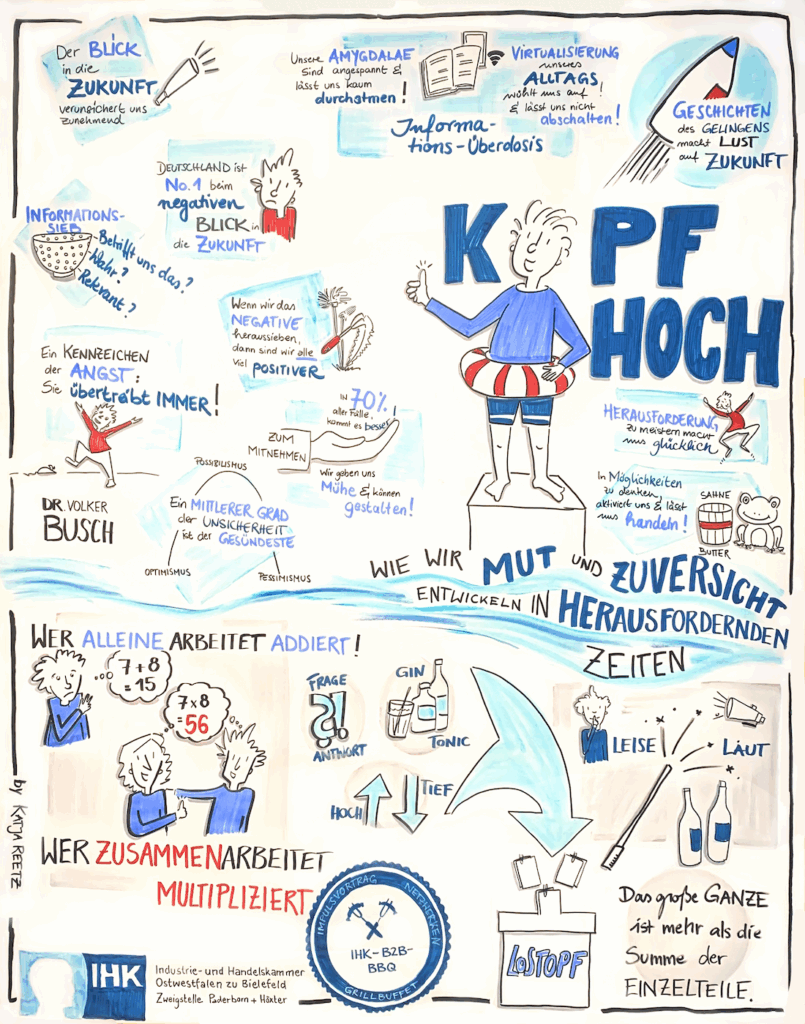 Der BLICK
in die
ZUKUNFT
verunsichert uns
zunehmend
Unsere AMYGDALAE
sind angespannt &
lässt uns kaum
durchatmen!
VIRTUALISIERUNG
unseres
ALLTAGS
wühlt uns auf!
& lässt uns nicht
abschalten!
Informa-
tions-Überdosis
GESCHICHTEN
des GELINGENS
macht LUST
auf ZUKUNFT
DEUTSCHLAND ist
No.1 beim
negativen
BLICK in
die ZUKUNFT
INFORMATIONS-
SIEB
Betrifft uns das?
Wahr?
Relevant?
KOPF
HOCH
Wenn wir das
NEGATIVE
heraussieben,
dann sind wir alle
viel POSITIVER
Ein KENNZEICHEN
der ANGST:
Sie übertreibt IMMER!
IN 70%
aller Fälle,
kommt es besser!
ZUM
MITNEHMEN
Wir geben uns
Mühe & können
gestalten!
HERAUSFORDERUNG
zu meistern macht
uns glücklich
In Möglichkeiten
zu denken,
aktiviert uns & lässt
uns handeln!
SAHNE
BUTTER
DR. VOLKER
BUSCH
POSSIBILISMUS
Ein MITTLERER GRAD
der UNSICHERHEIT
ist der GESÜNDESTE
OPTIMISMUS
PESSIMISMUS
WIE WIR MUT UND ZUVERSICHT
ENTWICKELN IN HERAUSFORDERNDEN
ZEITEN
WER ALLEINE ARBEITET ADDIERT!
7+8
=15
7x8
=56
WER ZUSAMMENARBEITET
MULTIPLIZIERT
FRAGE
?!
ANTWORT
GIN
TONIC
HOCH
TIEF
LEISE
LAUT
LOSTOPF
Das große GANZE
ist mehr als die
Summe der
EINZELTEILE.
IMPULSVORTRAG NETZWERKEN
IHK-B2B-
BBQ
GRILLBUFFET
IHK
Industrie- und Handelskammer
Ostwestfalen zu Bielefeld
Zweigstelle Paderborn + Höxter
by KATJA REETZ